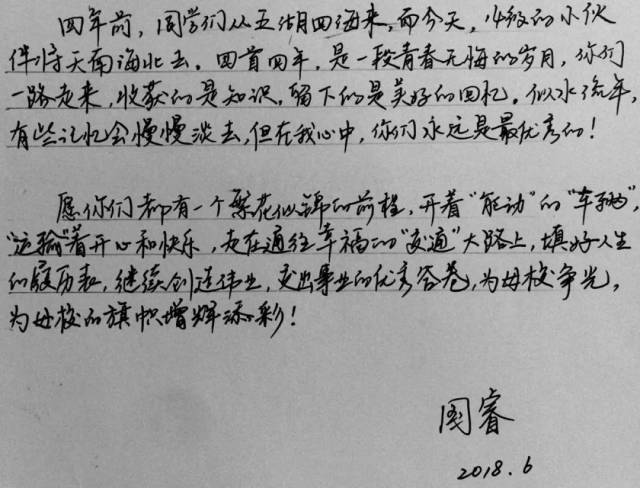 四年前，同学们从五湖四海来，而今天，小伙
伴将天南海北去。回首四年，是一段青春无悔的岁月，你们
一路走来，收获的是知识，留下的是美好的回忆。似水流年，
有些记忆会慢慢淡去，但在我心中，你们永远是最优秀的！
愿你们都有一个繁花似锦的前程，开着“能动”的“车辆”，
“运输”着开心和快乐，走在通往幸福的“交通”大路上，填好人生
的履历表，继续创造伟业，交出事业的优秀答卷，为母校争光，
为母校的旗帜增辉添彩！
睿
2018.6